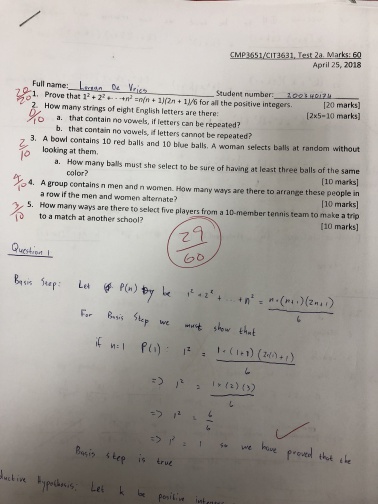 CMP3651/CIT3631, Test 2a. Marks: 60
April 25, 2018
Full name: Lorean De Vries Student number:
20/20 1. Prove that 1² + 2² + ··· +n² =n(n + 1)(2n + 1)/6 for all the positive integers. [20 marks]
2. How many strings of eight English letters are there: [2x5=10 marks]
0/10 a. that contain no vowels, if letters can be repeated?
b. that contain no vowels, if letters cannot be repeated?
3. A bowl contains 10 red balls and 10 blue balls. A woman selects balls at random without
2/10 looking at them.
a. How many balls must she select to be sure of having at least three balls of the same
color? [10 marks]
4/10 4. A group contains n men and n women. How many ways are there to arrange these people in
a row if the men and women alternate? [10 marks]
3/10 5. How many ways are there to select five players from a 10-member tennis team to make a trip
to a match at another school? [10 marks]
29/60
Question 1
Basis Step: Let P(n) be 1² + 2² + ... + n² = n·(n+1)(2n+1)/6
For Basis Step we must show that
if n=1 P(1): 1² = 1·(1+1)(2(1)+1)/6
=> 1² = 1·(2)(3)/6
=> 1² = 6/6
=> 1² = 1 so we have proved that the
Basis step is true
Let k be positive